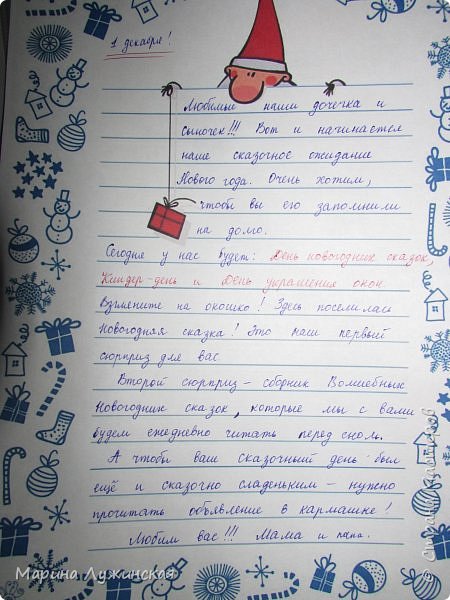 1 декабря!
Любимые наши дочечка и
сыночек!!! Вот и начинается
наше сказочное ожидание
Нового года. Очень хотим,
чтобы вы его запомнили
на долго.
Сегодня у нас будет: День новогодних сказок,
Киндер-день и День украшения окон.
Взгляните на окошко! Здесь поселилась
Новогодняя сказка! Это наш первый
сюрприз для вас
Второй сюрприз - сборник Волшебных
Новогодних сказок, которые мы с вами
будем ежедневно читать перед сном.
А чтобы ваш сказочный день был
ещё и сказочно сладеньким - нужно
прочитать объявление в кармашке!
Любим вас!!! Мама и папа.
Марина Лужинская
© Страна Мастеров